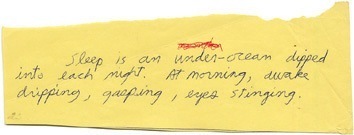 Sleep is an under-ocean dipped
into each night. At morning, awake
dripping, gasping, eyes stinging.